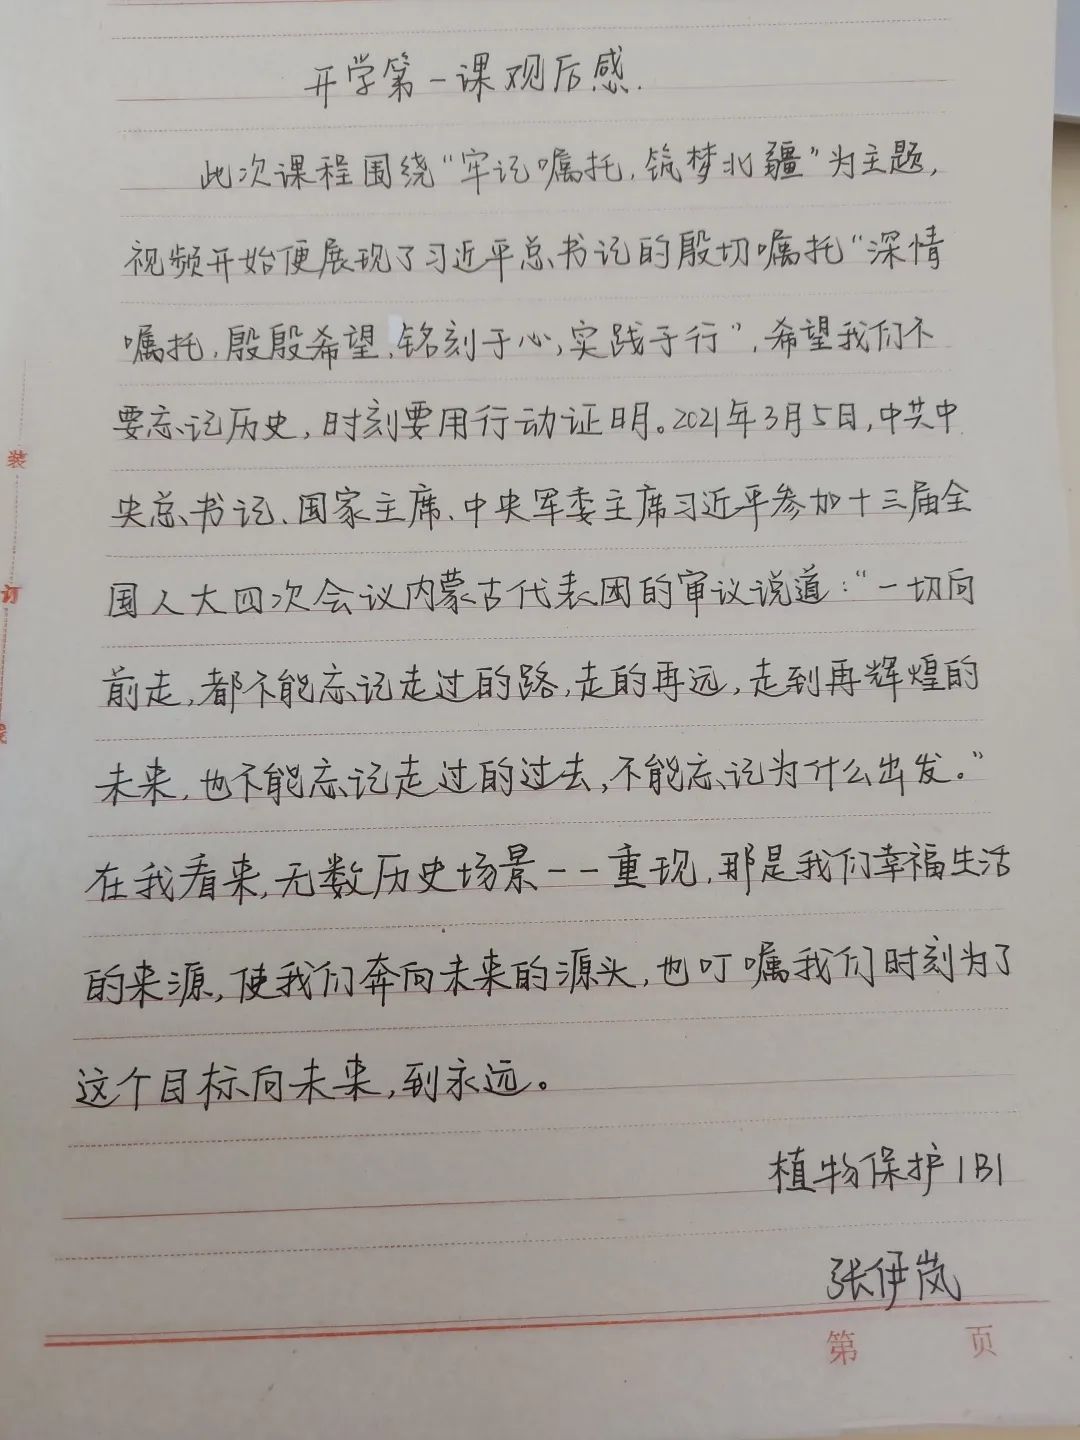 开学第一课观后感.
此次课程围绕“牢记嘱托,筑梦北疆”为主题,
视频开始便展现了习近平总书记的殷切嘱托“深情
嘱托,殷殷希望,铭刻于心,实践于行”,希望我们不
要忘记历史,时刻要用行动证明。2021年3月5日,中共中
央总书记、国家主席、中央军委主席习近平参加十三届全
国人大四次会议内蒙古代表团的审议说道:“一切向
前走,都不能忘记走过的路,走的再远,走到再辉煌的
未来,也不能忘记走过的过去,不能忘记为什么出发。”
在我看来,无数历史场景一一重现,那是我们幸福生活
的来源,使我们奔向未来的源头,也叮嘱我们时刻为了
这个目标向未来,到永远。
植物保护1B1
张伊岚
装
订
线
第 页